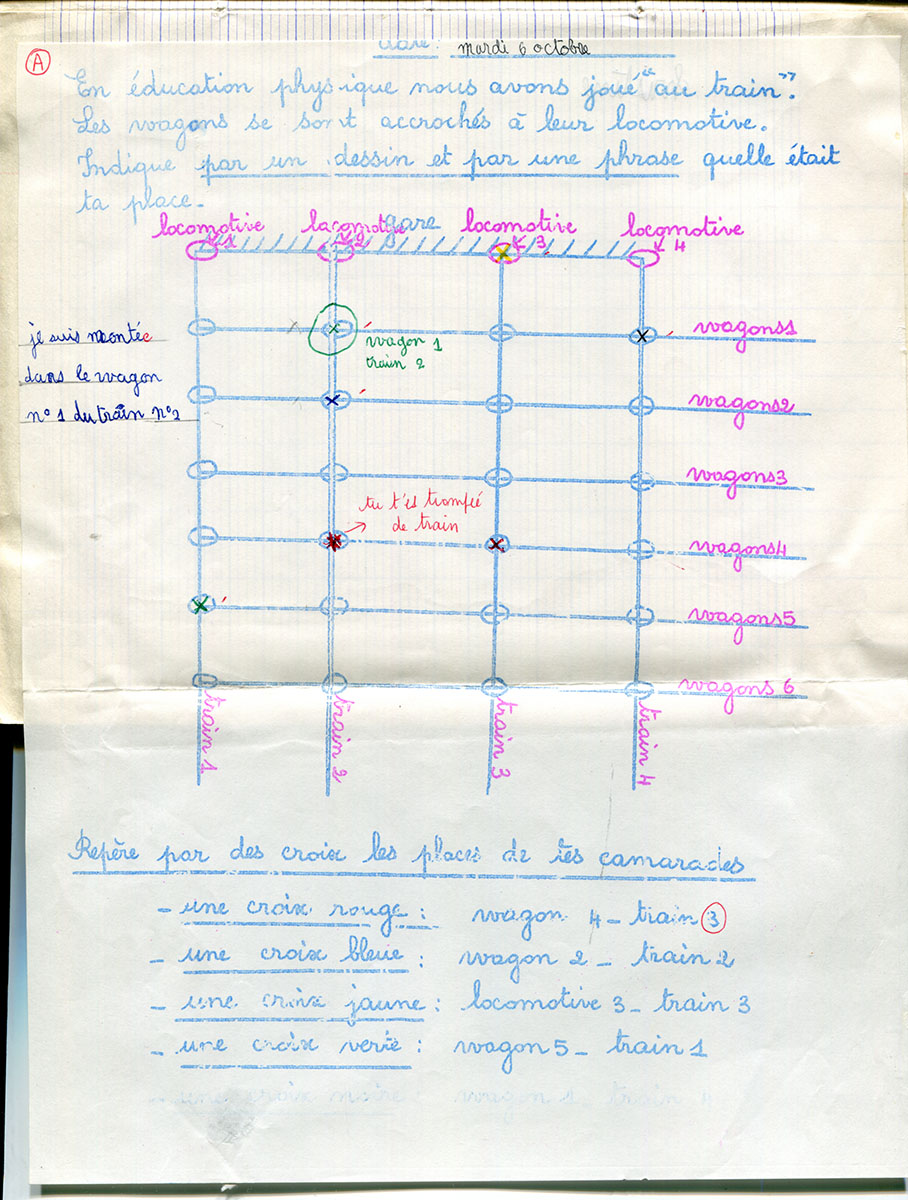 A
mardi 6 octobre
En éducation physique nous avons joué "au train".
Les wagons se sont accrochés à leur locomotive.
Indique par un dessin et par une phrase quelle était
ta place.
gare
locomotive 1
locomotive 2
locomotive 3
locomotive 4
je suis montée
dans le wagon
n° 1 du train n° 2
wagon 1
train 2
wagons1
wagons2
wagons3
tu t'es trompé
de train
wagons4
wagons5
wagons 6
train 1
train 2
train 3
train 4
Repère par des croix les places de tes camarades
- une croix rouge : wagon 4 - train 3
- une croix bleue : wagon 2 - train 2
- une croix jaune : locomotive 3 - train 3
- une croix verte : wagon 5 - train 1
- une croix noire : wagon 1 - train 4